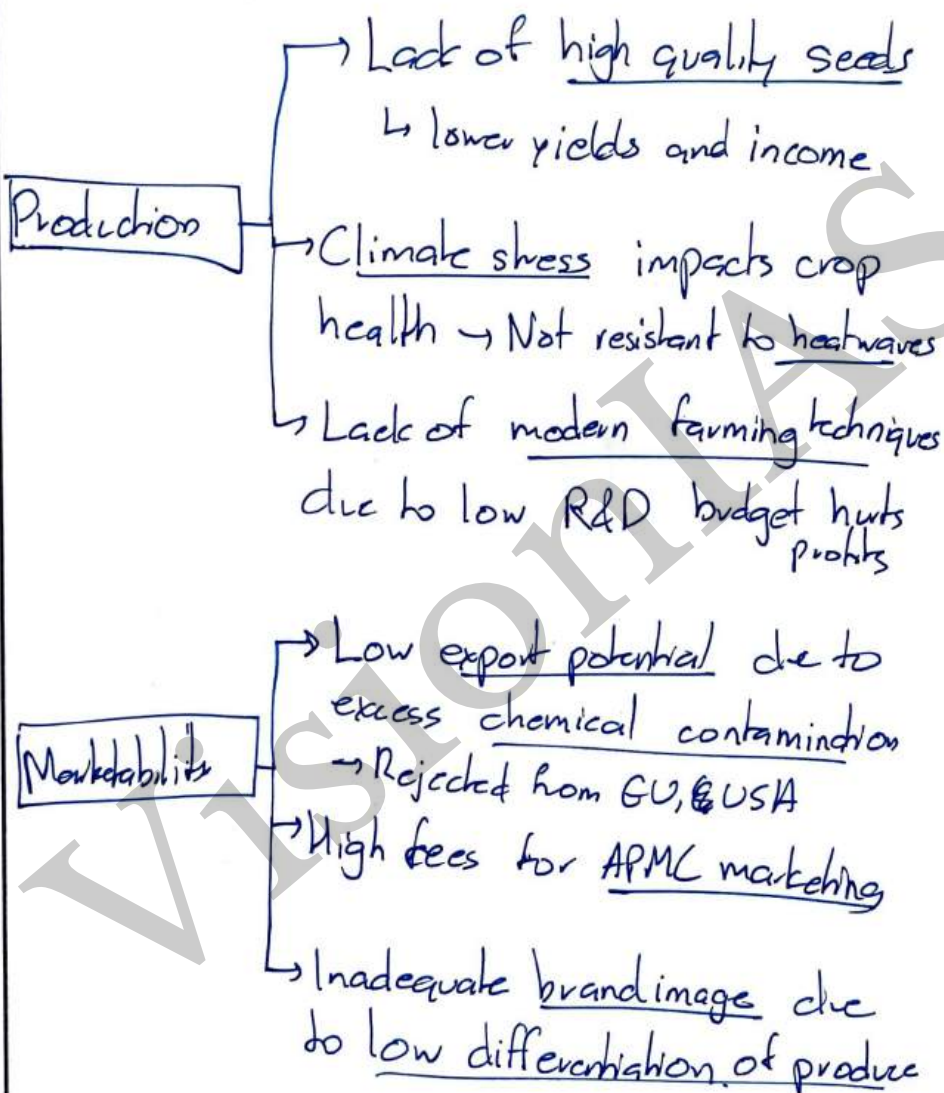 → Lack of high quality seeds
↳ lower yields and income
Production
→ Climate stress impacts crop
health → Not resistant to heatwaves
↳ Lack of modern farming techniques
due to low R&D budget hurts
profits
→ Low export potential due to
excess chemical contamindion
→ Rejected from EU, & USA
Marketability
→ High fees for APMC marketing
↳ Inadequate brand image due
to low differentiation of produce
VisionIAS